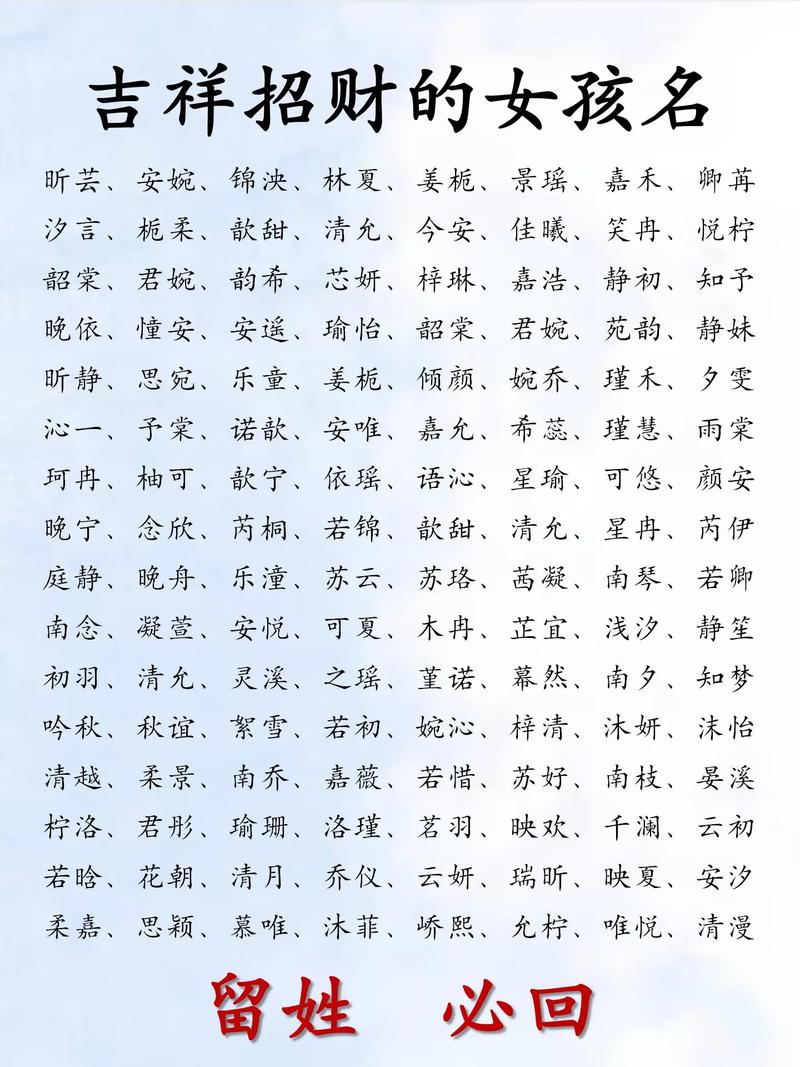 吉祥招财的女孩名
昕芸、安婉、锦泱、林夏、姜栀、景瑶、嘉禾、卿苒
汐言、栀柔、歆甜、清允、今安、佳曦、笑冉、悦柠
韶棠、君婉、韵希、芯妍、梓琳、嘉浩、静初、知予
晚依、憧安、安遥、瑜怡、韶棠、君婉、苑韵、静姝
昕静、思宛、乐童、姜栀、倾颜、婉乔、瑾禾、夕雯
沁一、予棠、诺歆、安唯、嘉允、希蕊、瑾慧、雨棠
珂冉、柚可、歆宁、依瑶、语沁、星瑜、可悠、颜安
晚宁、念欣、芮桐、若锦、歆甜、清允、星冉、芮伊
庭静、晚舟、乐潼、苏云、苏珞、茜凝、南琴、若卿
南念、凝萱、安悦、可夏、木冉、芷宜、浅汐、静笙
初羽、清允、灵溪、之瑶、堇诺、幕然、南夕、知梦
吟秋、秋谊、絮雪、若初、婉沁、梓清、沐妍、沫怡
清越、柔景、南乔、嘉薇、若惜、苏好、南枝、晏溪
柠洛、君彤、瑜珊、洛瑾、茗羽、映欢、千澜、云初
若晗、花朝、清月、乔仪、云妍、瑞昕、映夏、安汐
柔嘉、思颖、慕唯、沐菲、峤熙、允柠、唯悦、清漫
留姓 必回